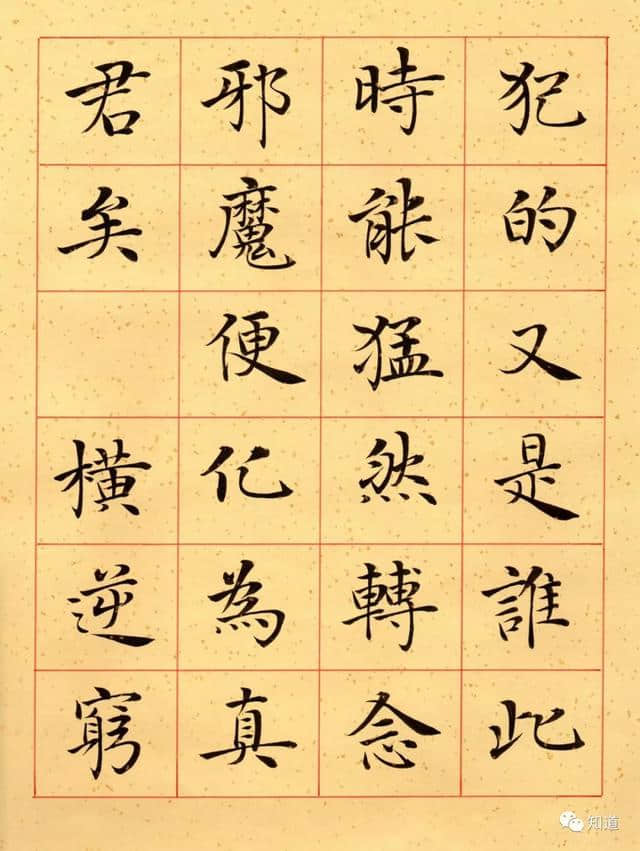 犯的又是誰此
時能猛然轉念
邪魔便化為真
君矣 橫逆窮
知道